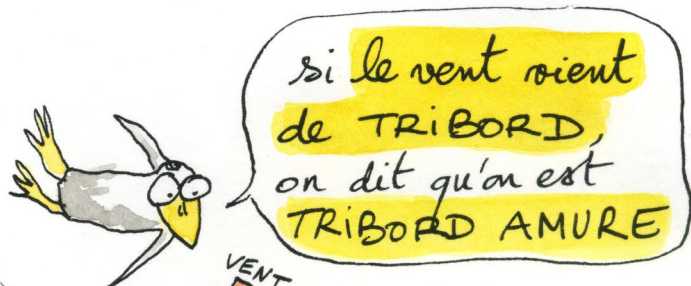 si le vent vient
de TRiBORD,
on dit qu'on est
TRiBORD AMURE
VENT